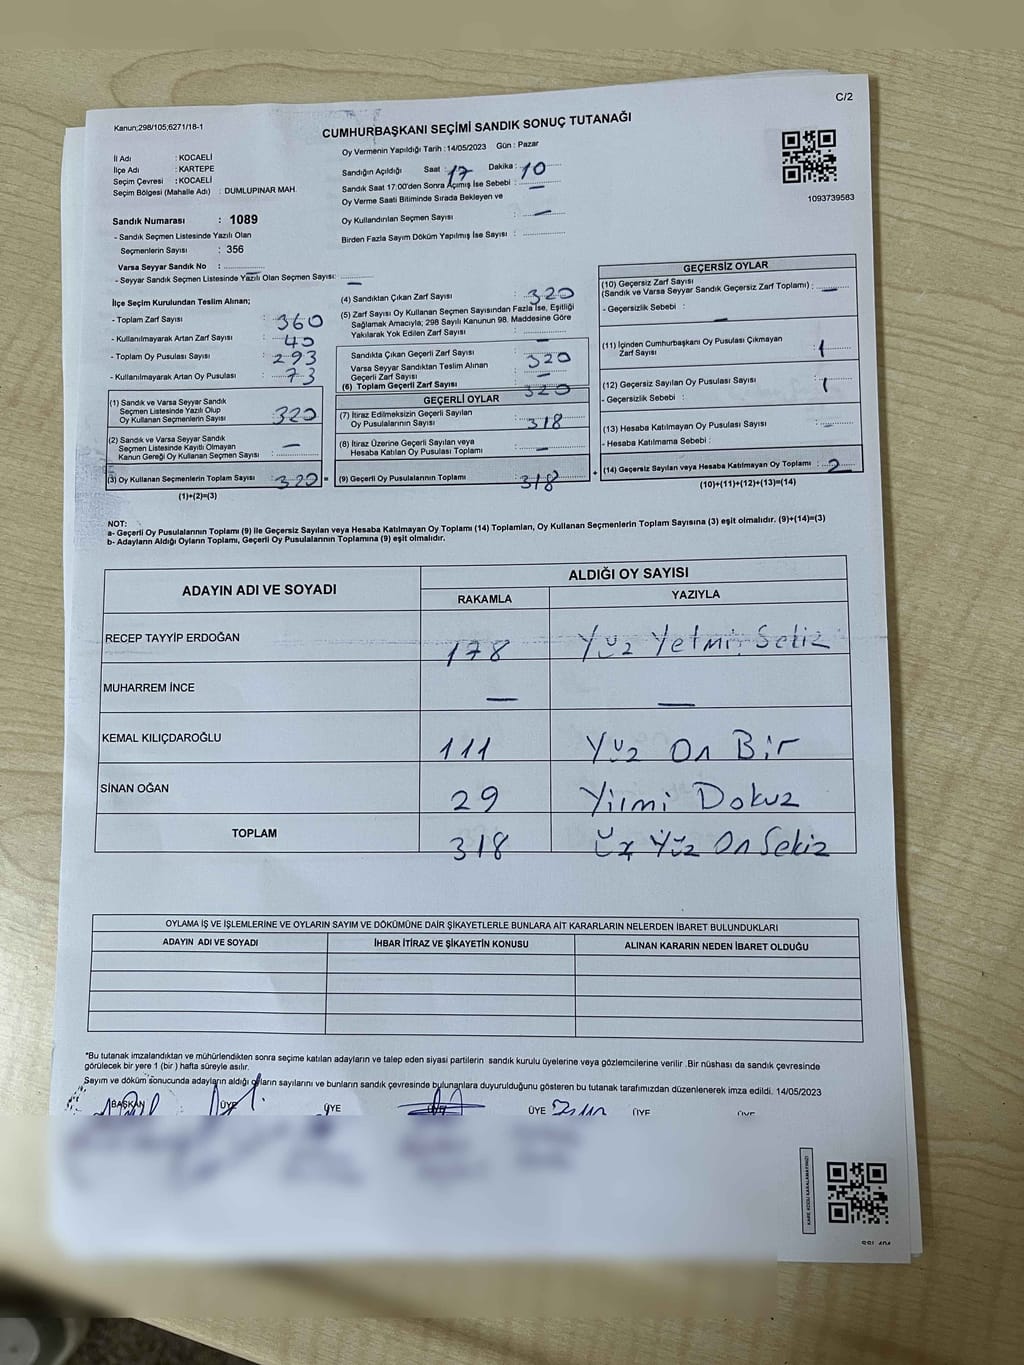 C/2
Kanun;298/105;6271/18-1
CUMHURBAŞKANI SEÇİMİ SANDIK SONUÇ TUTANAĞI
İl Adı : KOCAELİ
İlçe Adı : KARTEPE
Seçim Çevresi : KOCAELİ
Seçim Bölgesi (Mahalle Adı) : DUMLUPINAR MAH.
Sandık Numarası : 1089
- Sandık Seçmen Listesinde Yazılı Olan
Seçmenlerin Sayısı : 356
Varsa Seyyar Sandık No :
- Seyyar Sandık Seçmen Listesinde Yazılı Olan Seçmen Sayısı:
Oy Vermenin Yapıldığı Tarih :14/05/2023 Gün : Pazar
Sandığın Açıldığı Saat : 17 Dakika : 10
Sandık Saat 17.00'den Sonra Açılmış İse Sebebi : —
Oy Verme Saati Bitiminde Sırada Bekleyen ve
Oy Kullandırılan Seçmen Sayısı : —
Birden Fazla Sayım Döküm Yapılmış İse Sayısı :
1093739583
İlçe Seçim Kurulundan Teslim Alınan;
- Toplam Zarf Sayısı : 360
- Kullanılmayarak Artan Zarf Sayısı : 40
- Toplam Oy Pusulası Sayısı : 293
- Kullanılmayarak Artan Oy Pusulası : 73
(1) Sandık ve Varsa Seyyar Sandık
Seçmen Listesinde Yazılı Olup
Oy Kullanan Seçmenlerin Sayısı : 320
(2) Sandık ve Varsa Seyyar Sandık
Seçmen Listesinde Kayıtlı Olmayan
Kanun Gereği Oy Kullanan Seçmen Sayısı : —
(3) Oy Kullanan Seçmenlerin Toplam Sayısı : 320 =
(1)+(2)=(3)
(4) Sandıktan Çıkan Zarf Sayısı : 320
(5) Zarf Sayısı Oy Kullanan Seçmen Sayısından Fazla İse, Eşitliği
Sağlamak Amacıyla; 298 Sayılı Kanunun 98. Maddesine Göre
Yakılarak Yok Edilen Zarf Sayısı : —
Sandıkta Çıkan Geçerli Zarf Sayısı : 320
Varsa Seyyar Sandıktan Teslim Alınan
Geçerli Zarf Sayısı : —
(6) Toplam Geçerli Zarf Sayısı : 320
GEÇERLİ OYLAR
(7) İtiraz Edilmeksizin Geçerli Sayılan
Oy Pusulalarının Sayısı : 318
(8) İtiraz Üzerine Geçerli Sayılan veya
Hesaba Katılan Oy Pusulası Toplamı : —
(9) Geçerli Oy Pusulalarının Toplamı : 318 +
GEÇERSİZ OYLAR
(10) Geçersiz Zarf Sayısı
(Sandık ve Varsa Seyyar Sandık Geçersiz Zarf Toplamı) : —
- Geçersizlik Sebebi : —
(11) İçinden Cumhurbaşkanı Oy Pusulası Çıkmayan
Zarf Sayısı : 1
(12) Geçersiz Sayılan Oy Pusulası Sayısı : 1
- Geçersizlik Sebebi :
(13) Hesaba Katılmayan Oy Pusulası Sayısı : —
- Hesaba Katılmama Sebebi :
(14) Geçersiz Sayılan veya Hesaba Katılmayan Oy Toplamı : 2
(10)+(11)+(12)+(13)=(14)
NOT:
a- Geçerli Oy Pusulalarının Toplamı (9) ile Geçersiz Sayılan veya Hesaba Katılmayan Oy Toplamı (14) Toplamları, Oy Kullanan Seçmenlerin Toplam Sayısına (3) eşit olmalıdır. (9)+(14)=(3)
b- Adayların Aldığı Oyların Toplamı, Geçerli Oy Pusulalarının Toplamına (9) eşit olmalıdır.
ADAYIN ADI VE SOYADI
ALDIĞI OY SAYISI
RAKAMLA YAZIYLA
RECEP TAYYİP ERDOĞAN 178 Yüz Yetmiş Sekiz
MUHARREM İNCE — —
KEMAL KILIÇDAROĞLU 111 Yüz On Bir
SİNAN OĞAN 29 Yirmi Dokuz
TOPLAM 318 Üç Yüz On Sekiz
OYLAMA İŞ VE İŞLEMLERİNE VE OYLARIN SAYIM VE DÖKÜMÜNE DAİR ŞİKAYETLERLE BUNLARA AİT KARARLARIN NELERDEN İBARET BULUNDUKLARI
ADAYIN ADI VE SOYADI İHBAR İTİRAZ VE ŞİKAYETİN KONUSU ALINAN KARARIN NEDEN İBARET OLDUĞU
*Bu tutanak imzalandıktan ve mühürlendikten sonra seçime katılan adayların ve talep eden siyasi partilerin sandık kurulu üyelerine veya gözlemcilerine verilir .Bir nüshası da sandık çevresinde
görülecek bir yere 1 (bir ) hafta süreyle asılır.
Sayım ve döküm sonucunda adayların aldığı oyların sayılarını ve bunların sandık çevresinde bulunanlara duyurulduğunu gösteren bu tutanak tarafımızdan düzenlenerek imza edildi. 14/05/2023
BAŞKAN ÜYE ÜYE ÜYE ÜYE ÜYE ÜYE